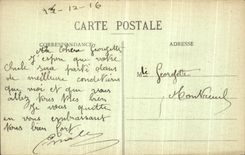 12-16
CARTE POSTALE
CORRESPONDANCE
ADRESSE
Ma chère Georgette
J'espère que votre
chute sera parti dans
de meilleure conditions
que moi et que vous
allez tous très bien
Je vous quitte
en vous embrassant
tous bien fort
Mlle Georgette
Montreuil